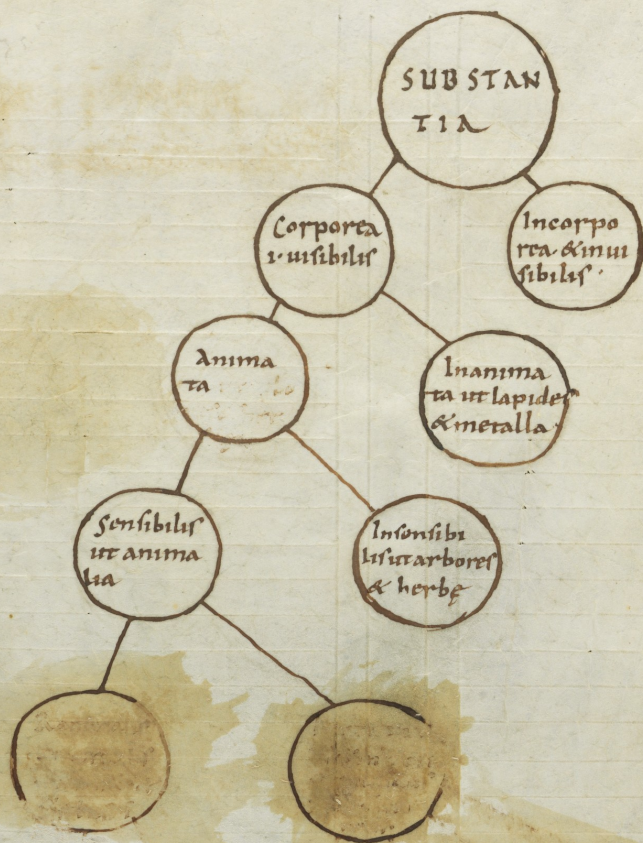 SUBSTAN
TIA
Corporea
i· uisibilis
Incorpo
rea· & inui
sibilis·
Anima
ta
Inanima
ta ut lapides
& metalla·
Sensibilis
ut anima
lia
Insensibi
lis ut arbores
& herbę